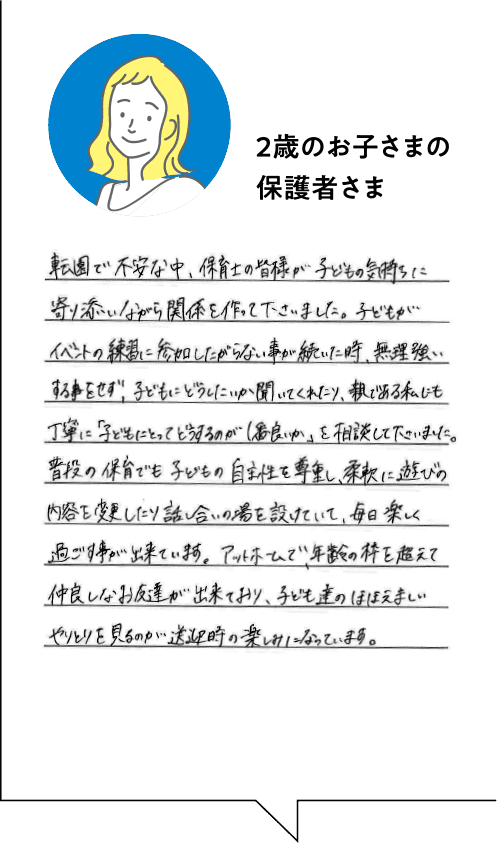 2歳のお子さまの
保護者さま
転園で不安な中、保育士の皆様が子どもの気持ちに
寄り添いながら関係を作って下さいました。子どもが
イベントの練習に参加したがらない事が続いた時、無理強い
する事をせず、子どもにどうしたいか聞いてくれたり、親である私にも
丁寧に「子どもにとってどうするのが1番良いか」を相談して下さいました。
普段の保育でも子どもの自主性を尊重し、柔軟に遊びの
内容を変更したり話し合いの場を設けていて、毎日楽しく
過ごす事が出来ています。アットホームで、年齢の枠を超えて
仲良しなお友達が出来ており、子ども達のほほえましい
やりとりを見るのが送迎時の楽しみになっています。